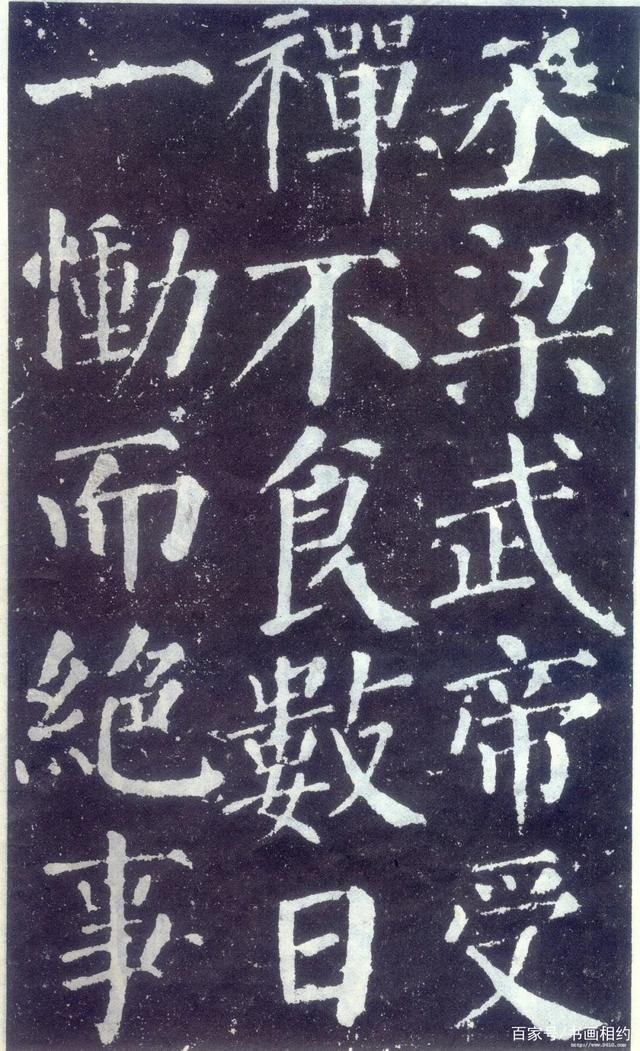 丞梁武帝受
禪不食數日
一慟而絕事
百家号/书画相约
http://www.9610.com